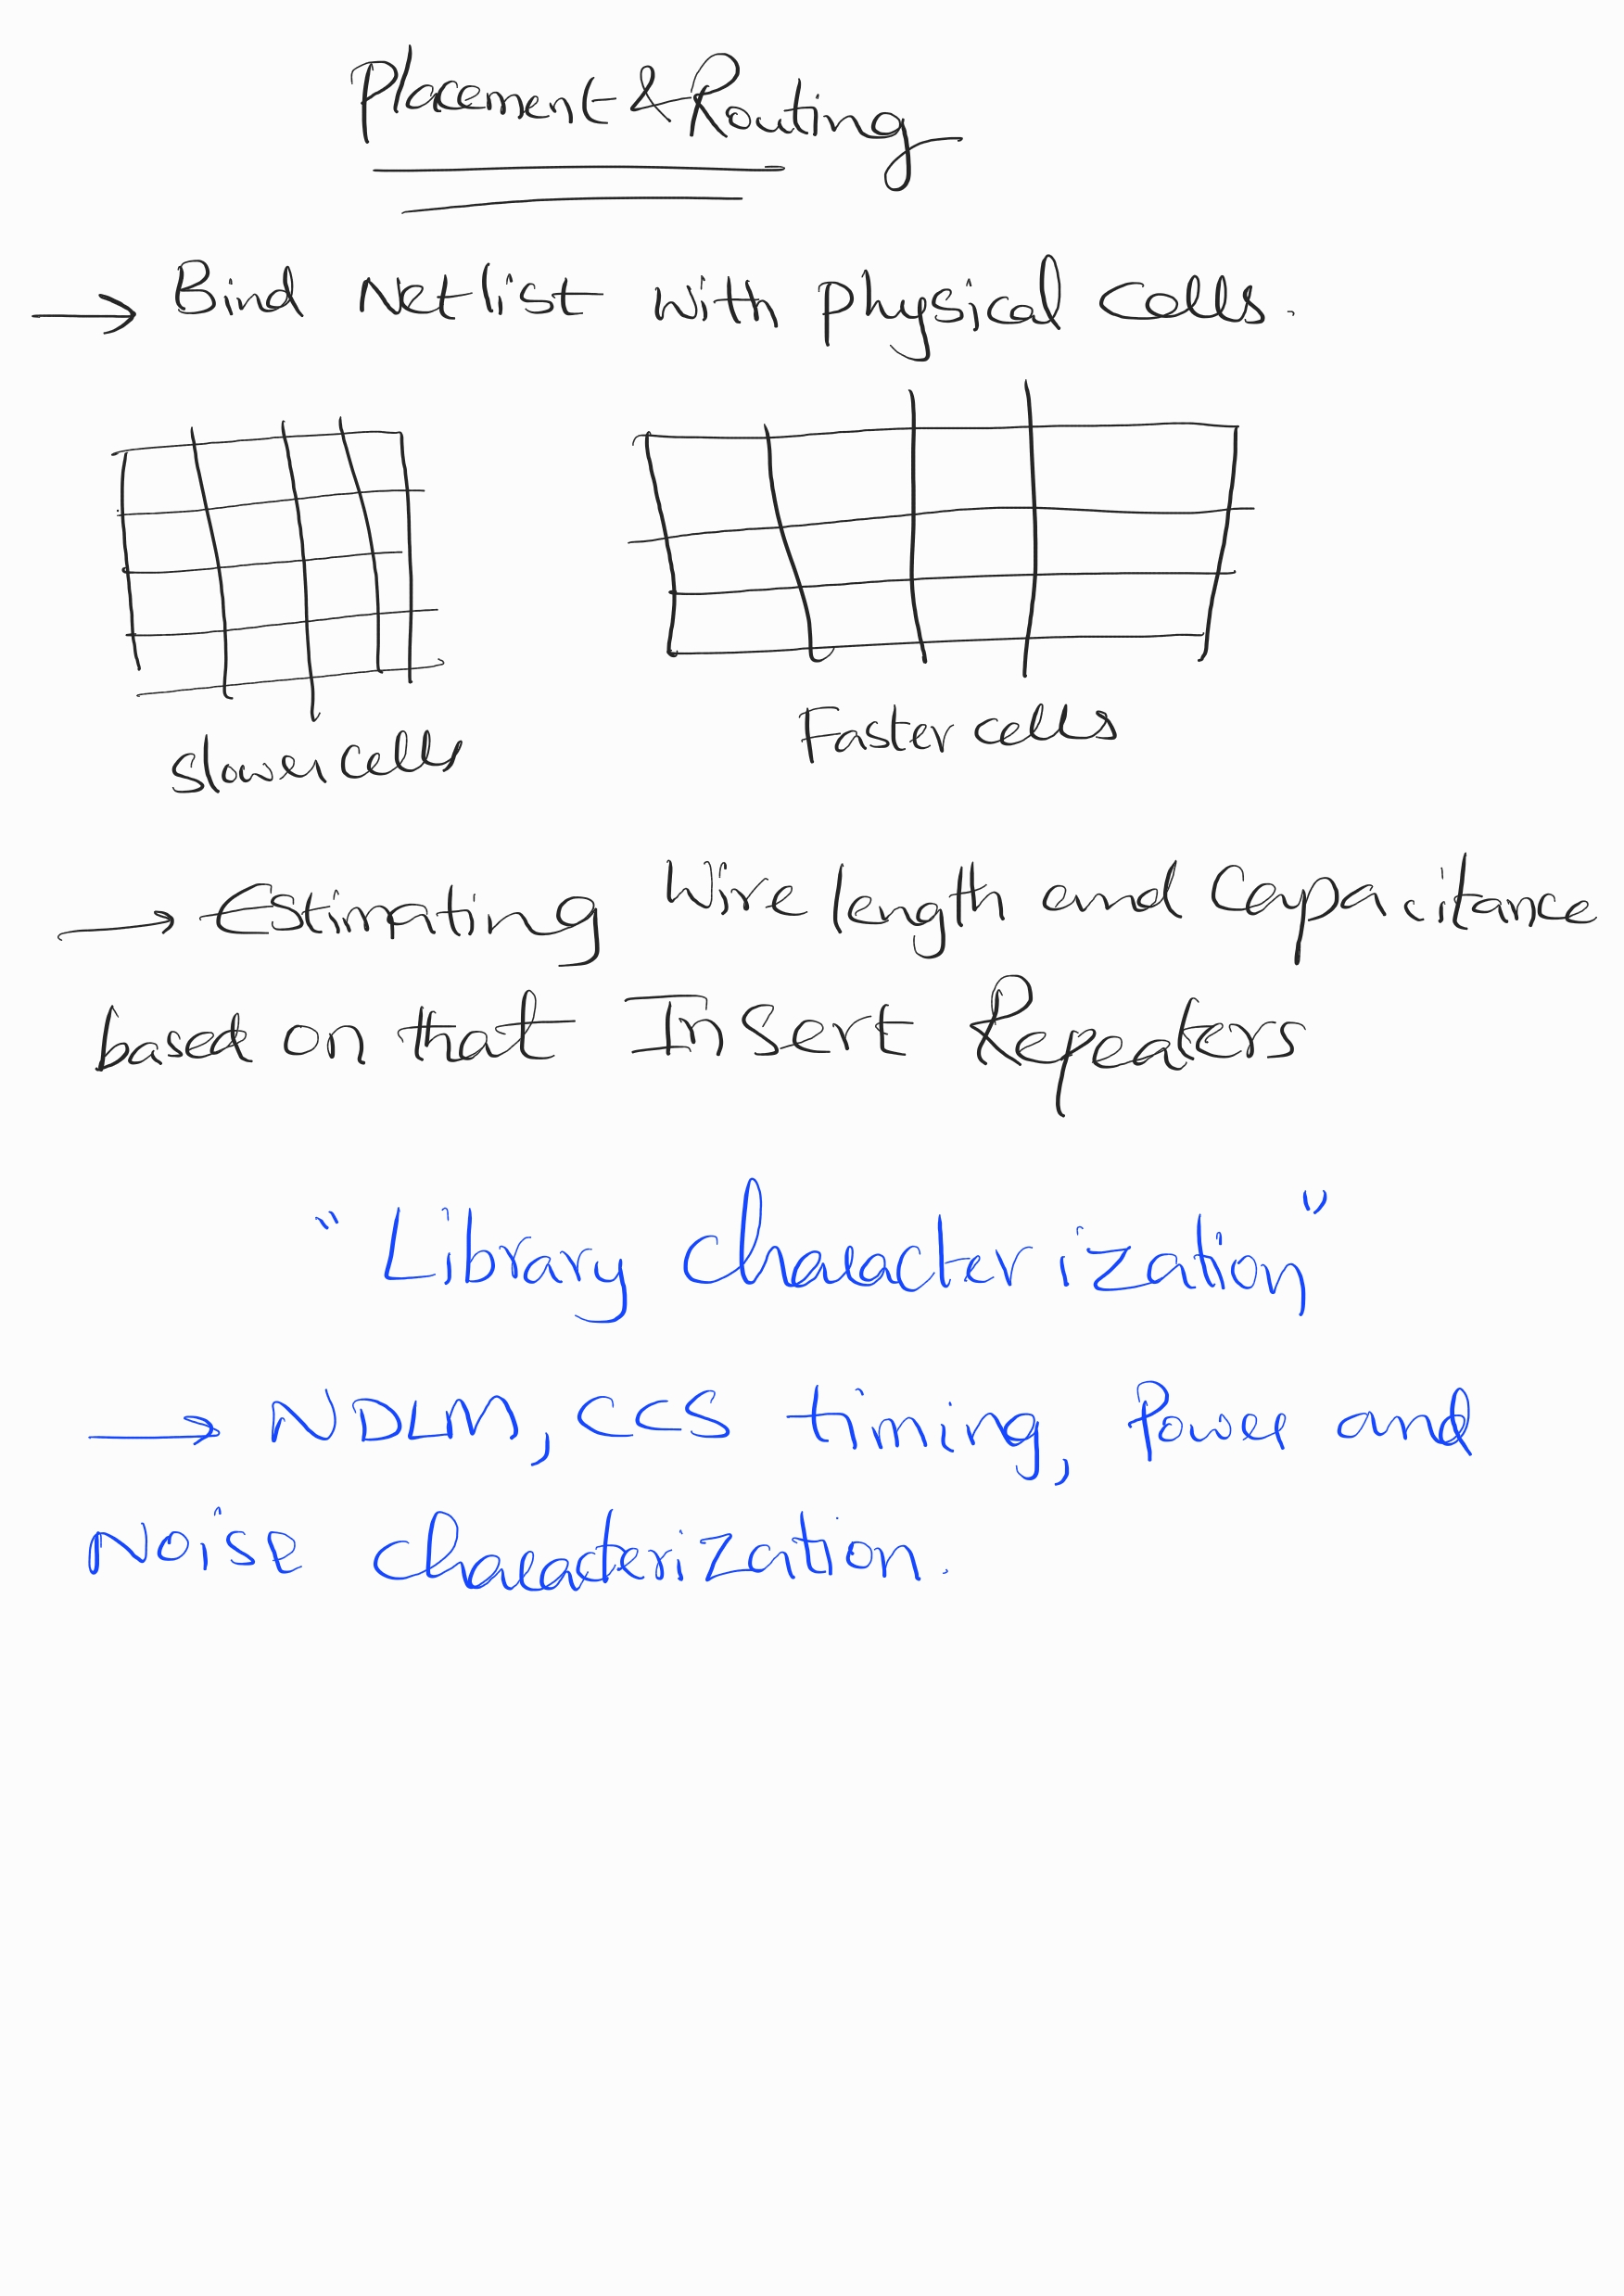 Placement & Routing
→ Bind Netlist with physical cells.
slower cells
Faster cells
→ Estimating Wire length and Capacitance
based on that Insert Repeaters
"Library characterization"
→ NDLM, CCS timing, Power and
Noise characterization.